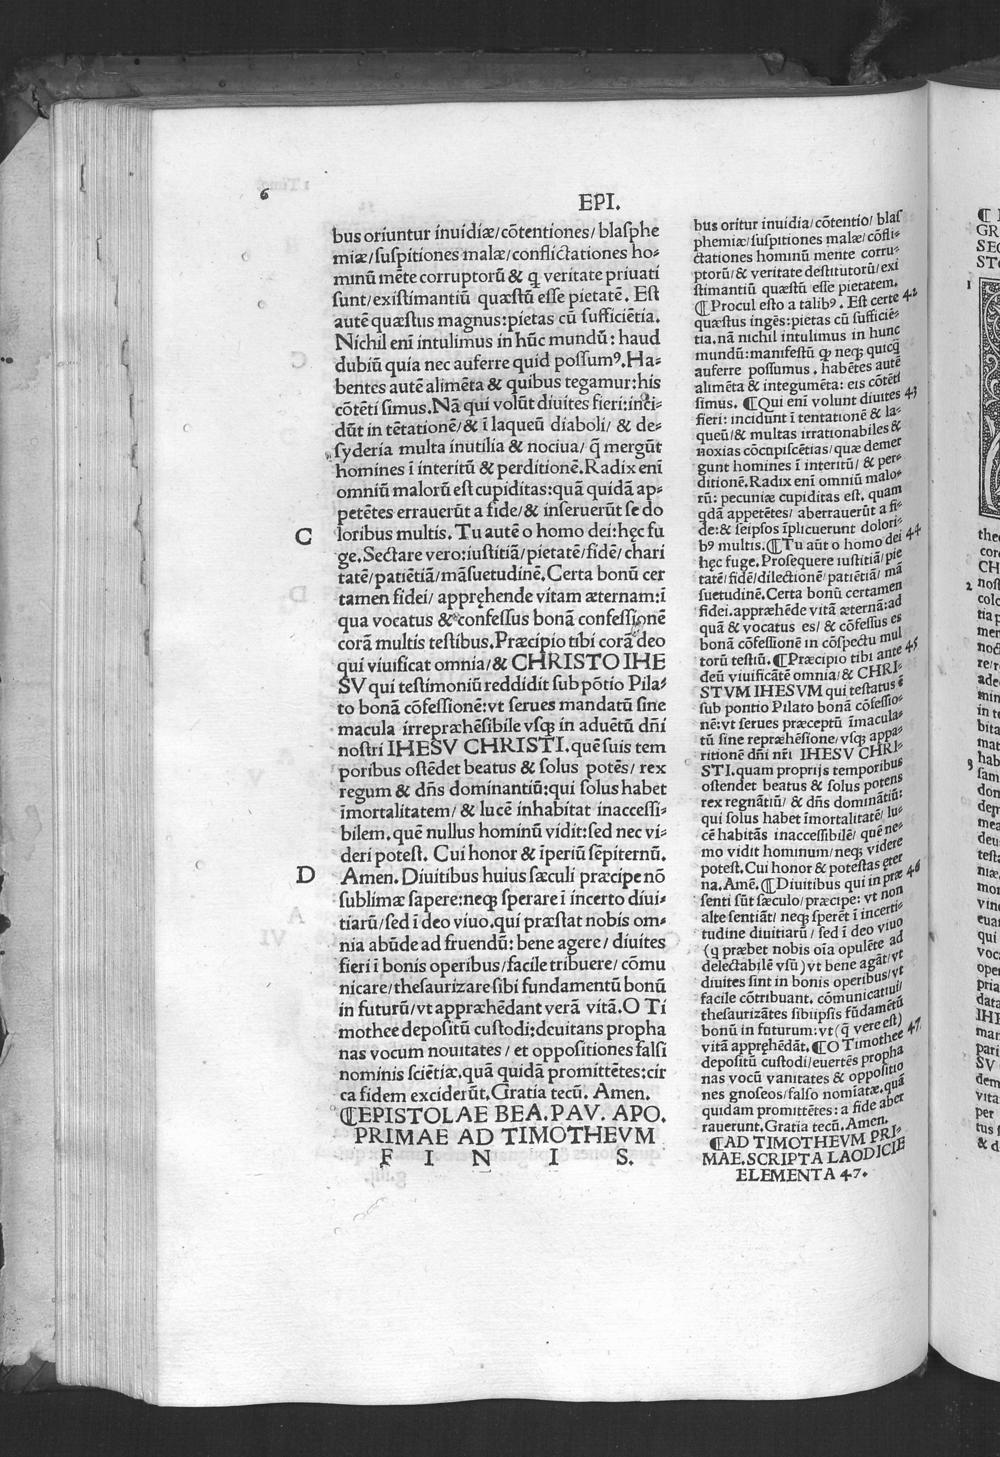 6
EPI.
bus oriuntur inuidiæ/cõtentiones/blasphe
miæ/suspitiones malæ/conflictationes ho⸗
minũ mẽte corruptorũ & q̃ veritate priuati
sunt/existimantiũ quæstũ esse pietatẽ. Est
autẽ quæstus magnus:pietas cũ sufficiẽtia.
Nichil enĩ intulimus in hũc mundũ: haud
dubiũ quia nec auferre quid possumꝰ. Ha⸗
bentes autẽ alimẽta & quibus tegamur:his
cõtẽti simus. Nã qui volũt diuites fieri:inci⸗
dũt in tẽtationẽ/& ĩ laqueũ diaboli/ & de⸗
syderia multa inutilia & nociua/ q̃ mergũt
homines ĩ interitũ & perditionẽ. Radix enĩ
omniũ malorũ est cupiditas:quã quidã ap⸗
petẽtes errauerũt a fide/& inseruerũt se do
C
loribus multis. Tu autẽ o homo dei:hęc fu
ge. Sectare vero:iustitiã/pietatẽ/fidẽ/chari
tatẽ/patiẽtiã/mãsuetudinẽ. Certa bonũ cer
tamen fidei/ appręhende vitam æternam:ĩ
qua vocatus & confessus bonã confessionẽ
corã multis testibus. Præcipio tibi corã deo
qui viuificat omnia/& CHRISTO IHE
SV qui testimoniũ reddidit sub põtio Pila⸗
to bonã cõfessionẽ:vt serues mandatũ sine
macula irrepræhẽsibile vsqꝫ in aduẽtũ dñi
nostri IHESV CHRISTI. quẽ suis tem
poribus ostẽdet beatus & solus potẽs/ rex
regum & dñs dominantiũ:qui solus habet
ĩmortalitatem/ & lucẽ inhabitat inaccessi⸗
bilem. quẽ nullus hominũ vidit:sed nec vi⸗
deri potest. Cui honor & ĩperiũ sẽpiternũ.
D
Amen. Diuitibus huius sæculi præcipe nõ
sublimæ sapere:neqꝫ sperare ĩ incerto diui⸗
tiarũ/sed ĩ deo viuo. qui præstat nobis om⸗
nia abũde ad fruendũ: bene agere/ diuites
fieri ĩ bonis operibus/facile tribuere/ cõmu
nicare/thesaurizare sibi fundamentũ bonũ
in futurũ/vt appræhẽdant verã vitã. O Ti
mothee depositũ custodi:deuitans propha
nas vocum nouitates / et oppositiones falsi
nominis sciẽtiæ. quã quidã promittẽtes:cir
ca fidem exciderũt. Gratia tecũ. Amen.
¶EPISTOLAE BEA. PAV. APO.
PRIMAE AD TIMOTHEVM
F I N I S.
bus oritur inuidia/cõtentio/ blas
phemiæ/suspitiones malæ/cõfli⸗
ctationes hominũ mente corru⸗
ptorũ/& veritate destitutorũ/exi
stimantiũ quæstũ esse pietatem.
¶Procul esto a talibꝰ. Est certe 42
quæstus ingẽs:pietas cũ sufficiẽ⸗
tia. nã nichil intulimus in hunc
mundũ:manifestũ qꝫ neqꝫ quicq̃
auferre possumus. habẽtes autẽ
alimẽta & integumẽta: eis cõtẽti
simus. ¶Qui enĩ volunt diuites 43
fieri: incidunt ĩ tentationẽ & la⸗
queũ/& multas irrationabiles &
noxias cõcupiscẽtias/quæ demer
gunt homines ĩ interitũ/ & per⸗
ditionẽ. Radix enĩ omniũ malo⸗
rũ: pecuniæ cupiditas est. quam
qdã appetẽtes/ aberrauerũt a fi⸗
de:& seipsos ĩplicuerunt dolori⸗
bꝰ multis. ¶Tu aũt o homo dei 44
hęc fuge. Prosequere iustitiã/pie
tatẽ/fidẽ/dilectionẽ/patiẽtiã/ mã
suetudinẽ. Certa bonũ certamen
fidei. appræhẽde vitã æternã:ad
quã & vocatus es/ & cõfessus es
bonã cõfessionẽ in cõspectu mul
torũ testiũ. ¶Præcipio tibi ante 45
deũ viuificãtẽ omnia/& CHRI⸗
STVM IHESVM qui testatus ẽ
sub pontio Pilato bonã cõfessio⸗
nẽ:vt serues præceptũ ĩmacula⸗
tũ sine repræhẽsione/vsqꝫ appa⸗
ritionẽ dñi nr̃i IHESV CHRI⸗
STI. quam proprijs temporibus
ostendet beatus & solus potens
rex regnãtiũ/ & dñs dominãtiũ:
qui solus habet ĩmortalitatẽ/ lu⸗
cẽ habitãs inaccessibilẽ/ quẽ ne⸗
mo vidit hominum/neqꝫ videre
potest. Cui honor & potestas ęter
na. Amẽ. ¶Diuitibus qui in præ 46
senti sũt sæculo/præcipe: vt non
alte sentiãt/ neqꝫ sperẽt ĩ incerti⸗
tudine diuitiarũ / sed ĩ deo viuo
(q præbet nobis oĩa opulẽte ad
delectabilẽ vsũ) vt bene agãt/vt
diuites sint in bonis operibus/vt
facile cõtribuant. cõmunicatiui/
thesaurizãtes sibiipsis fũdamẽtũ
bonũ in futurum:vt (q̃ vere est)
vitã appręhẽdãt. ¶O Timothee 47
depositũ custodi/euertẽs propha
nas vocũ vanitates & oppositio
nes gnoseos/falso nomĩatæ. quã
quidam promittẽtes: a fide aber
rauerunt. Gratia tecũ. Amen.
¶AD TIMOTHEVM PRI⸗
MAE. SCRIPTA LAODICIE
ELEMENTA 47.